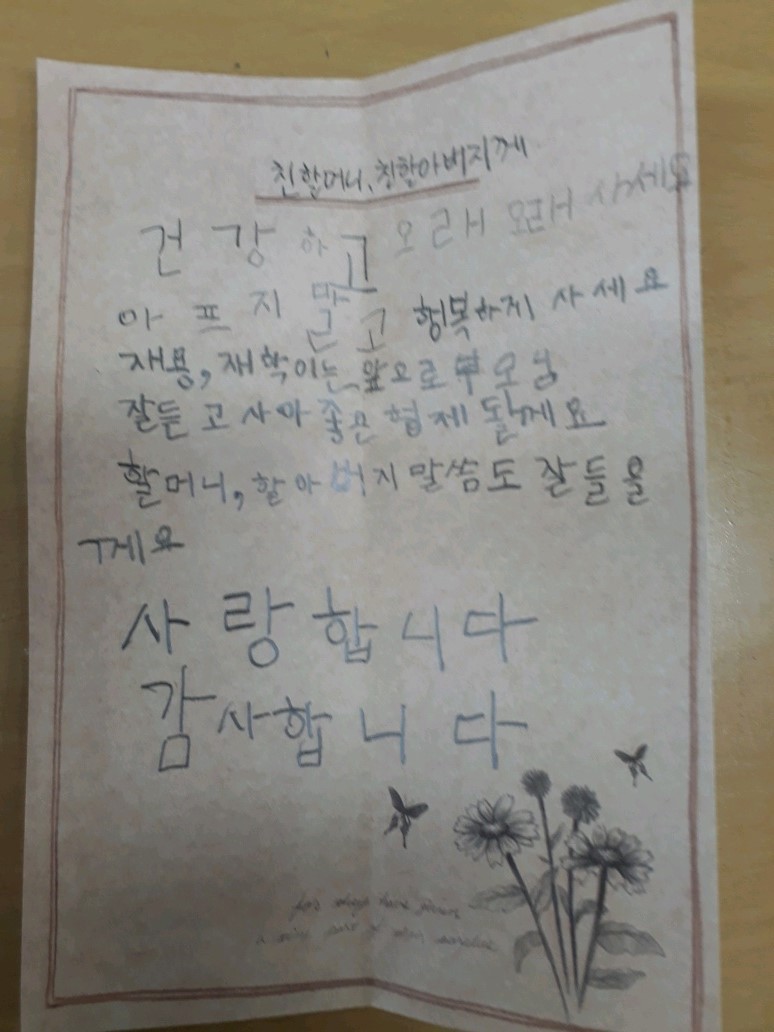 친할머니, 친할아버지께
건강하고 오래 오래 사세요
아프지 말고 행복하게 사세요
재용, 재학이는 앞으로 부모님
잘듣고 사이 좋은 형제 될게요
할머니, 할아버지 말씀도 잘들을
께요
사랑합니다
감사합니다